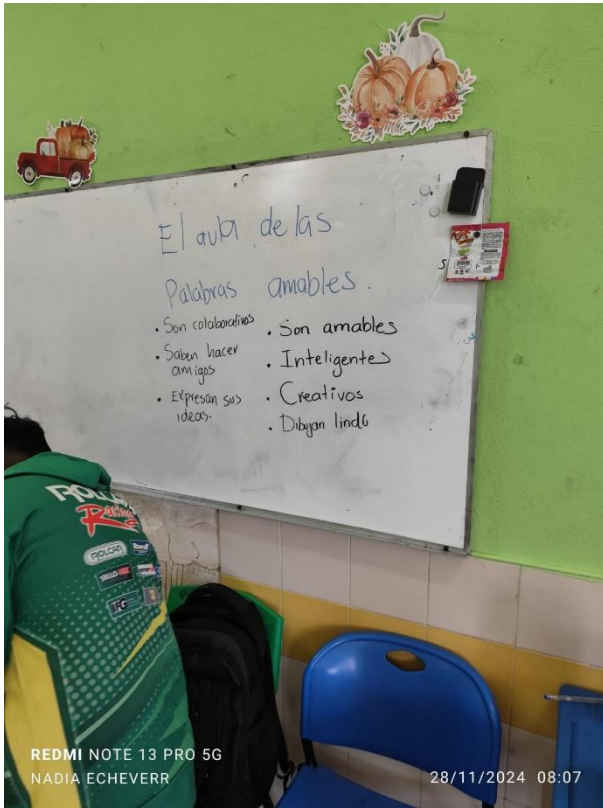 El aula de las
Palabras amables.
• Son colaborativos
• Saben hacer
amigos
• Expresan sus
ideas.
• Son amables
• Inteligentes
• Creativos
• Dibujan lindo
ROLCAR
Racing
ROLCAR
REDMI NOTE 13 PRO 5G
NADIA ECHEVERR
28/11/2024 08:07